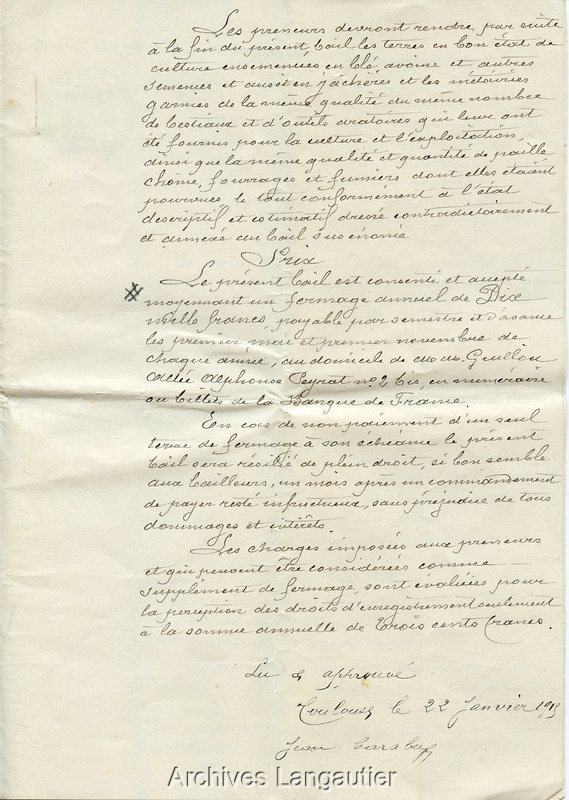 Les preneurs devront rendre, par suite
à la fin du présent bail les terres en bon état de
culture ensemencées en blé, avoine et autres
semences et aussi en jachères et les métairies
garnies de la même qualité du même nombre
de bestiaux et d'outils aratoires qui leur ont
été fournis pour la culture et l'exploitation,
ainsi que la même qualité et quantité de paille
chaume, fourrages et fumiers dont elles étaient
pourvues, le tout conformément à l'état
descriptif et estimatif dressé contradictoirement
et annexé au bail susénoncé
Prix
Le présent bail est consenti et accepté
moyennant un fermage annuel de Dix
mille francs, payable par semestre et d'avance
les premier mai et premier novembre de
chaque année, au domicile de Guillou
Allée Alphonse Peyrat no 2 bis, en numéraire
ou billets de la Banque de France.
En cas de non paiement d'un seul
terme de fermage à son échéance le présent
bail sera résilié de plein droit, si bon semble
aux bailleurs, un mois après un commandement
de payer resté infructueux, sans préjudice de tous
dommages et intérêts.
Les charges imposées aux preneurs
et qui peuvent être considérées comme
supplément de fermage, sont évaluées pour
la perception des droits d'enregistrement seulement
à la somme annuelle de trois cents francs.
Lu & approuvé
Toulouse le 22 Janvier 1919
Jean
Archives Langautier